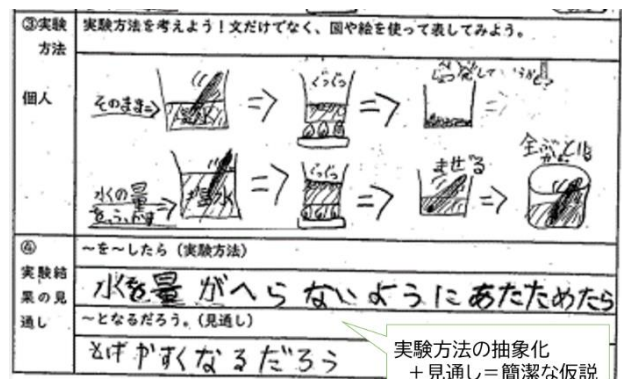 ③実験方法
実験方法を考えよう！文だけでなく、図や絵を使って表してみよう。
個人
そのまま⇒
ぐつぐつ
水の量
をふやす⇒
食塩水
ぐつぐつ
まぜる
全ぶとける
④
実験結果の見通し
～を～したら（実験方法）
水を量がへらないようにあたためたら
～となるだろう。（見通し）
とけやすくなるだろう
実験方法の抽象化
＋見通し＝簡潔な仮説